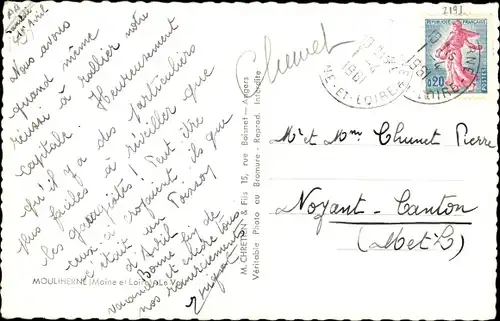 2191
1er Avril
Nous avons
quand même
réussi à rallier notre
capitale. Heureusement
qu'il y a des particuliers
plus faciles à réveiller que
les garagistes! Peut être
ceux-ci croyaient ils que
c'était un Poisson
d'Avril
Bonne fin de
vacances et encore tous
nos remerciements
MOULIHERNE (Maine et Loire)
M. CHRETIEN & Fils 15, rue Boisnet - Angers
Véritable Photo au Bromure - Reprod. Interdite
Chunet
1961
NE-ET-LOIRE
1961
REPUBLIQUE FRANÇAISE
0,20
POSTES
Mr et Mme Chunet Pierre
Noyant-Canton
(M et L)